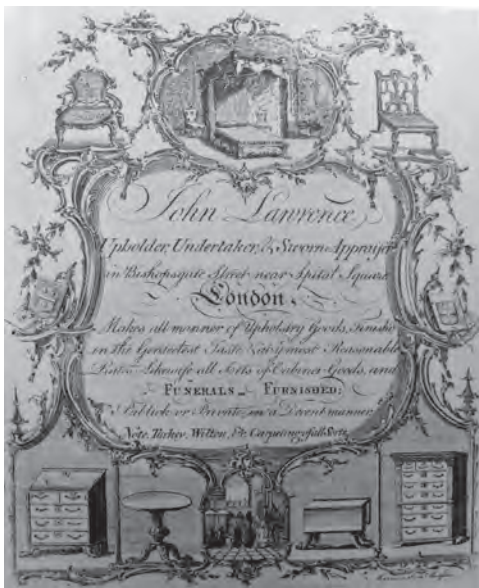 John Lawrence,
Upholder, Undertaker, & Sworn Appraiser
in Bishopsgate Street near Spital Square
London.
Makes all manner of Upholstry Goods, Finish'd
in the Genteelest Taste & at ye most Reasonable
Rates. Likewise all Sorts of Cabinet Goods, and
FUNERALS FURNISHED;
Publick or Private, in a Decent manner
Note, Turkey, Wilton, &c. Carpeting of all Sorts.